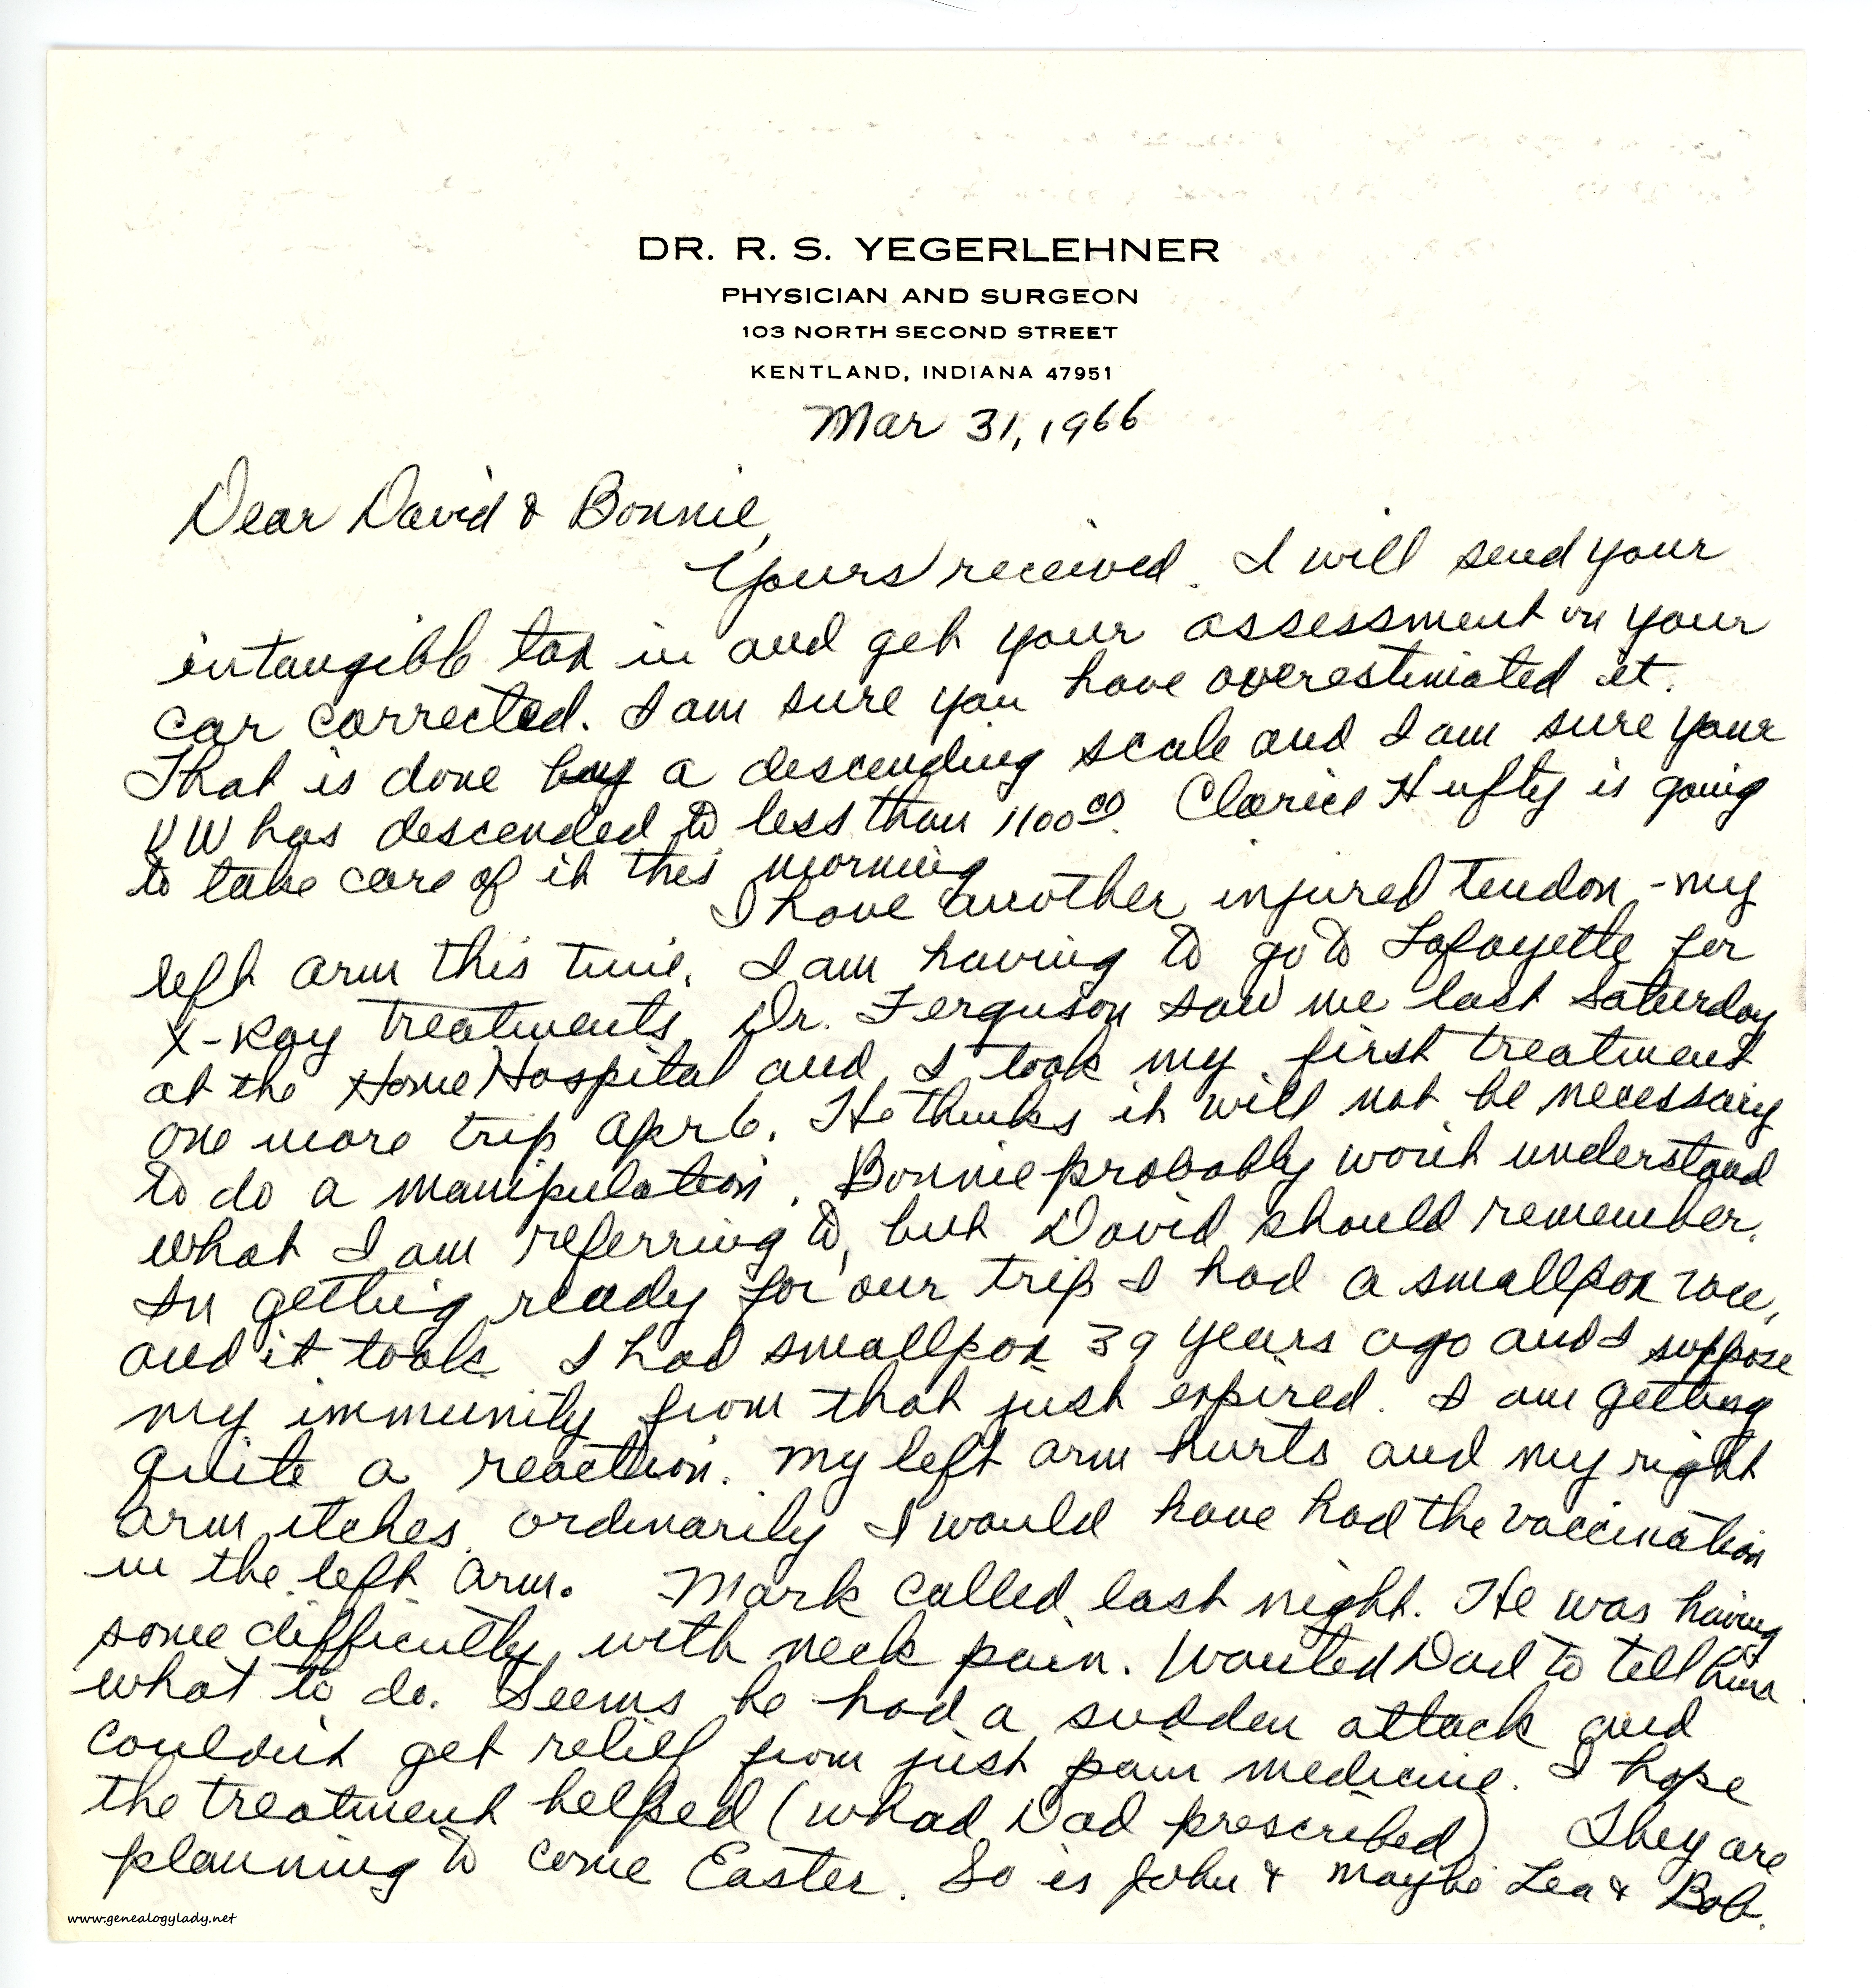 DR. R. S. YEGERLEHNER
PHYSICIAN AND SURGEON
103 NORTH SECOND STREET
KENTLAND, INDIANA 47951
Mar 31, 1966
Dear David & Bonnie,
Yours received. I will send your
intangible tax in and get your assessment on your
car corrected. I am sure you have overestimated it.
That is done by a descending scale and I am sure your
VW has descended to less than 1100 00. Clarice Hufty is going
to take care of it this morning
I have another injured tendon - my
left arm this time. I am having to go to Lafayette for
X-Ray treatments. Dr. Ferguson saw me last Saturday
at the Home Hospital and I took my first treatment
one more trip Apr 6. He thinks it will not be necessary
to do a manipulation. Bonnie probably won't understand
what I am referring to, but David should remember.
In getting ready for our trip I had a smallpox vac,
and it took. I had smallpox 39 years ago and I suppose
my immunity from that just expired. I am getting
quite a reaction. My left arm hurts and my right
arm itches. Ordinarily I would have had the vaccination
in the left arm. Mark called last night. He was having
some difficultly with neck pain. Wanted Dad to tell him
what to do. Seems he had a sudden attack and
couldn't get relief from just pain medicine. I hope
the treatment helped (whad Dad prescribed) They are
planning to come Easter. So is John & maybe Lea & Bob.
www.genealogylady.net